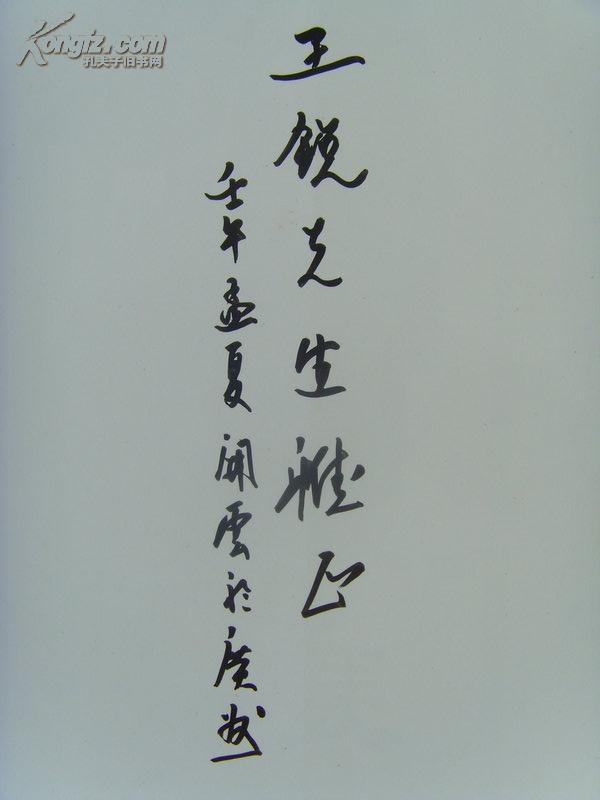 Kongfz.com
孔夫子旧书网
王锐先生雅正
壬午孟夏開雲於廣州